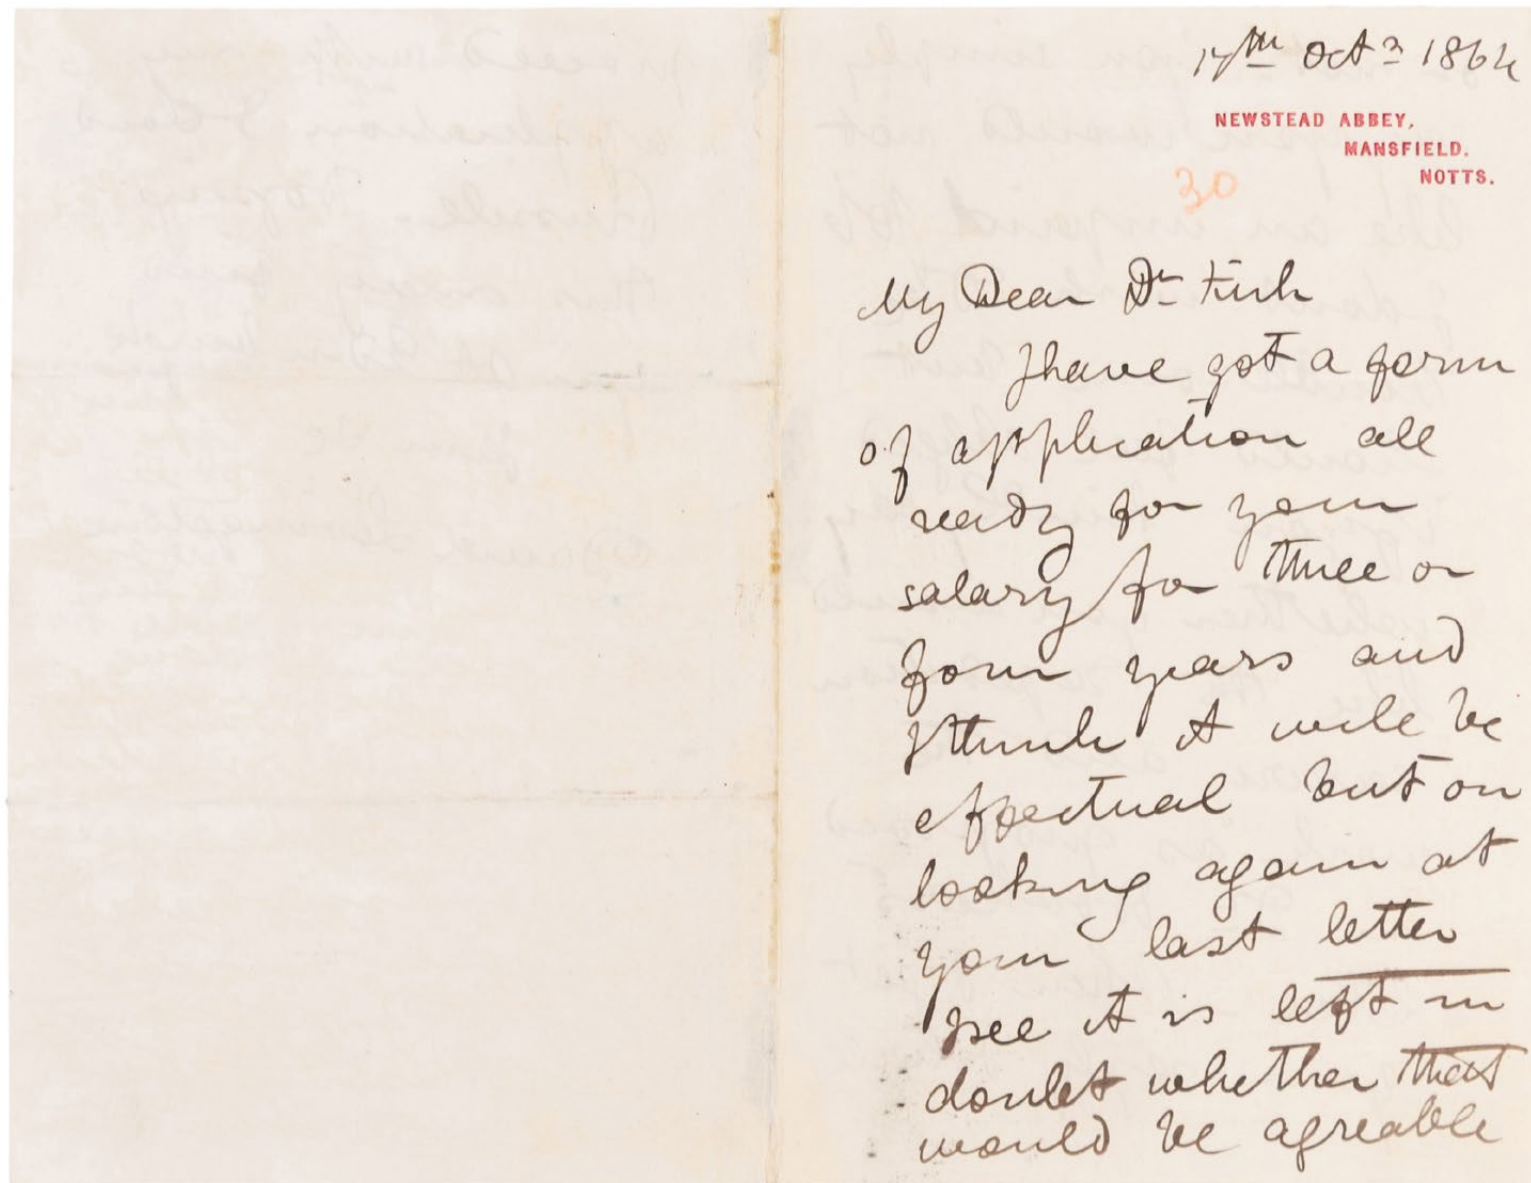 17th Oct 1864
NEWSTEAD ABBEY,
MANSFIELD.
NOTTS.
30
My Dear Dr Kirk
I have got a form
of application all
ready for your
salary for three or
four years and
I think it will be
effectual but on
looking again at
your last letter
I see it is left in
doubt whether that
would be agreable